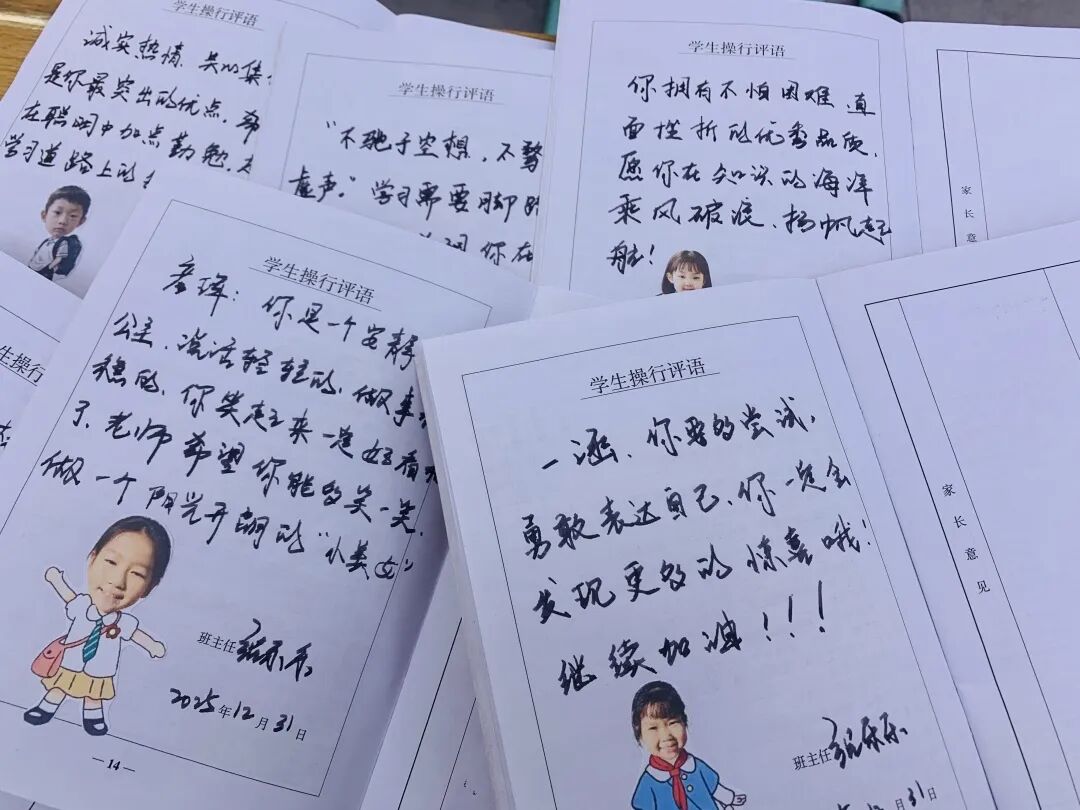 学生操行评语
诚实热情、关心集
是你最突出的优点。希
在聪明中加点勤勉,
学习道路上的
学生操行评语
“不驰于空想,不骛
虚声。”学习需要脚踏
你在
学生操行评语
你拥有不怕困难、直
面挫折的优秀品质,
愿你在知识的海洋
乘风破浪、扬帆起
航!
家长意
学生操行评语
学生操行评语
你是一个安静
公主,说话轻轻的,做事
稳的,你笑起来一定好看
了,老师希望你能多笑一笑,
做一个阳光开朗的“小美女”
班主任
2025年12月31日
— 14 —
学生操行评语
一涵,你要多尝试,
勇敢表达自己,你一定会
发现更多的惊喜哦!
继续加油!!!
班主任
12月31日
家长意见